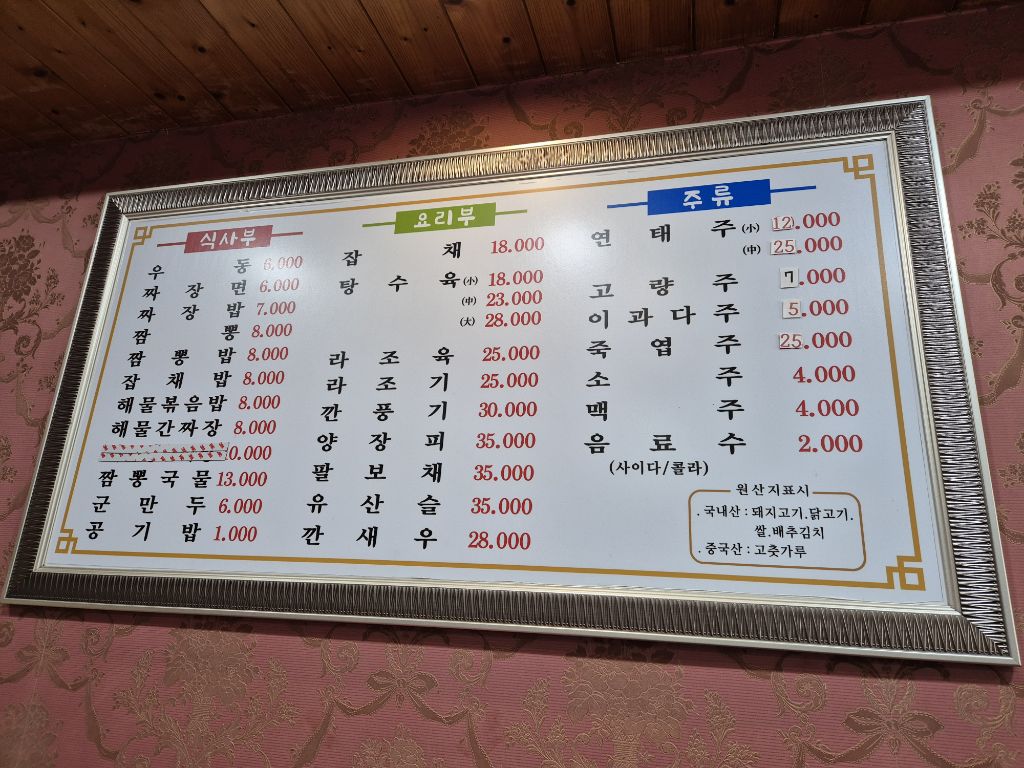 식사부
우동 6.000
짜장면 6.000
짜장밥 7.000
짬뽕 8.000
짬뽕밥 8.000
잡채밥 8.000
해물볶음밥 8.000
해물간짜장 8.000
0.000
짬뽕국물 13.000
군만두 6.000
공기밥 1.000
요리부
잡채 18.000
탕수육 (小) 18.000
(中) 23.000
(大) 28.000
라조육 25.000
라조기 25.000
깐풍기 30.000
양장피 35.000
팔보채 35.000
유산슬 35.000
깐새우 28.000
주류
연태주 (小) 12.000
(中) 25.000
고량주 7.000
이과두주 5.000
죽엽주 25.000
소주 4.000
맥주 4.000
음료수 2.000
(사이다/콜라)
원산지표시
. 국내산 : 돼지고기.닭고기.
쌀.배추김치
. 중국산 : 고춧가루